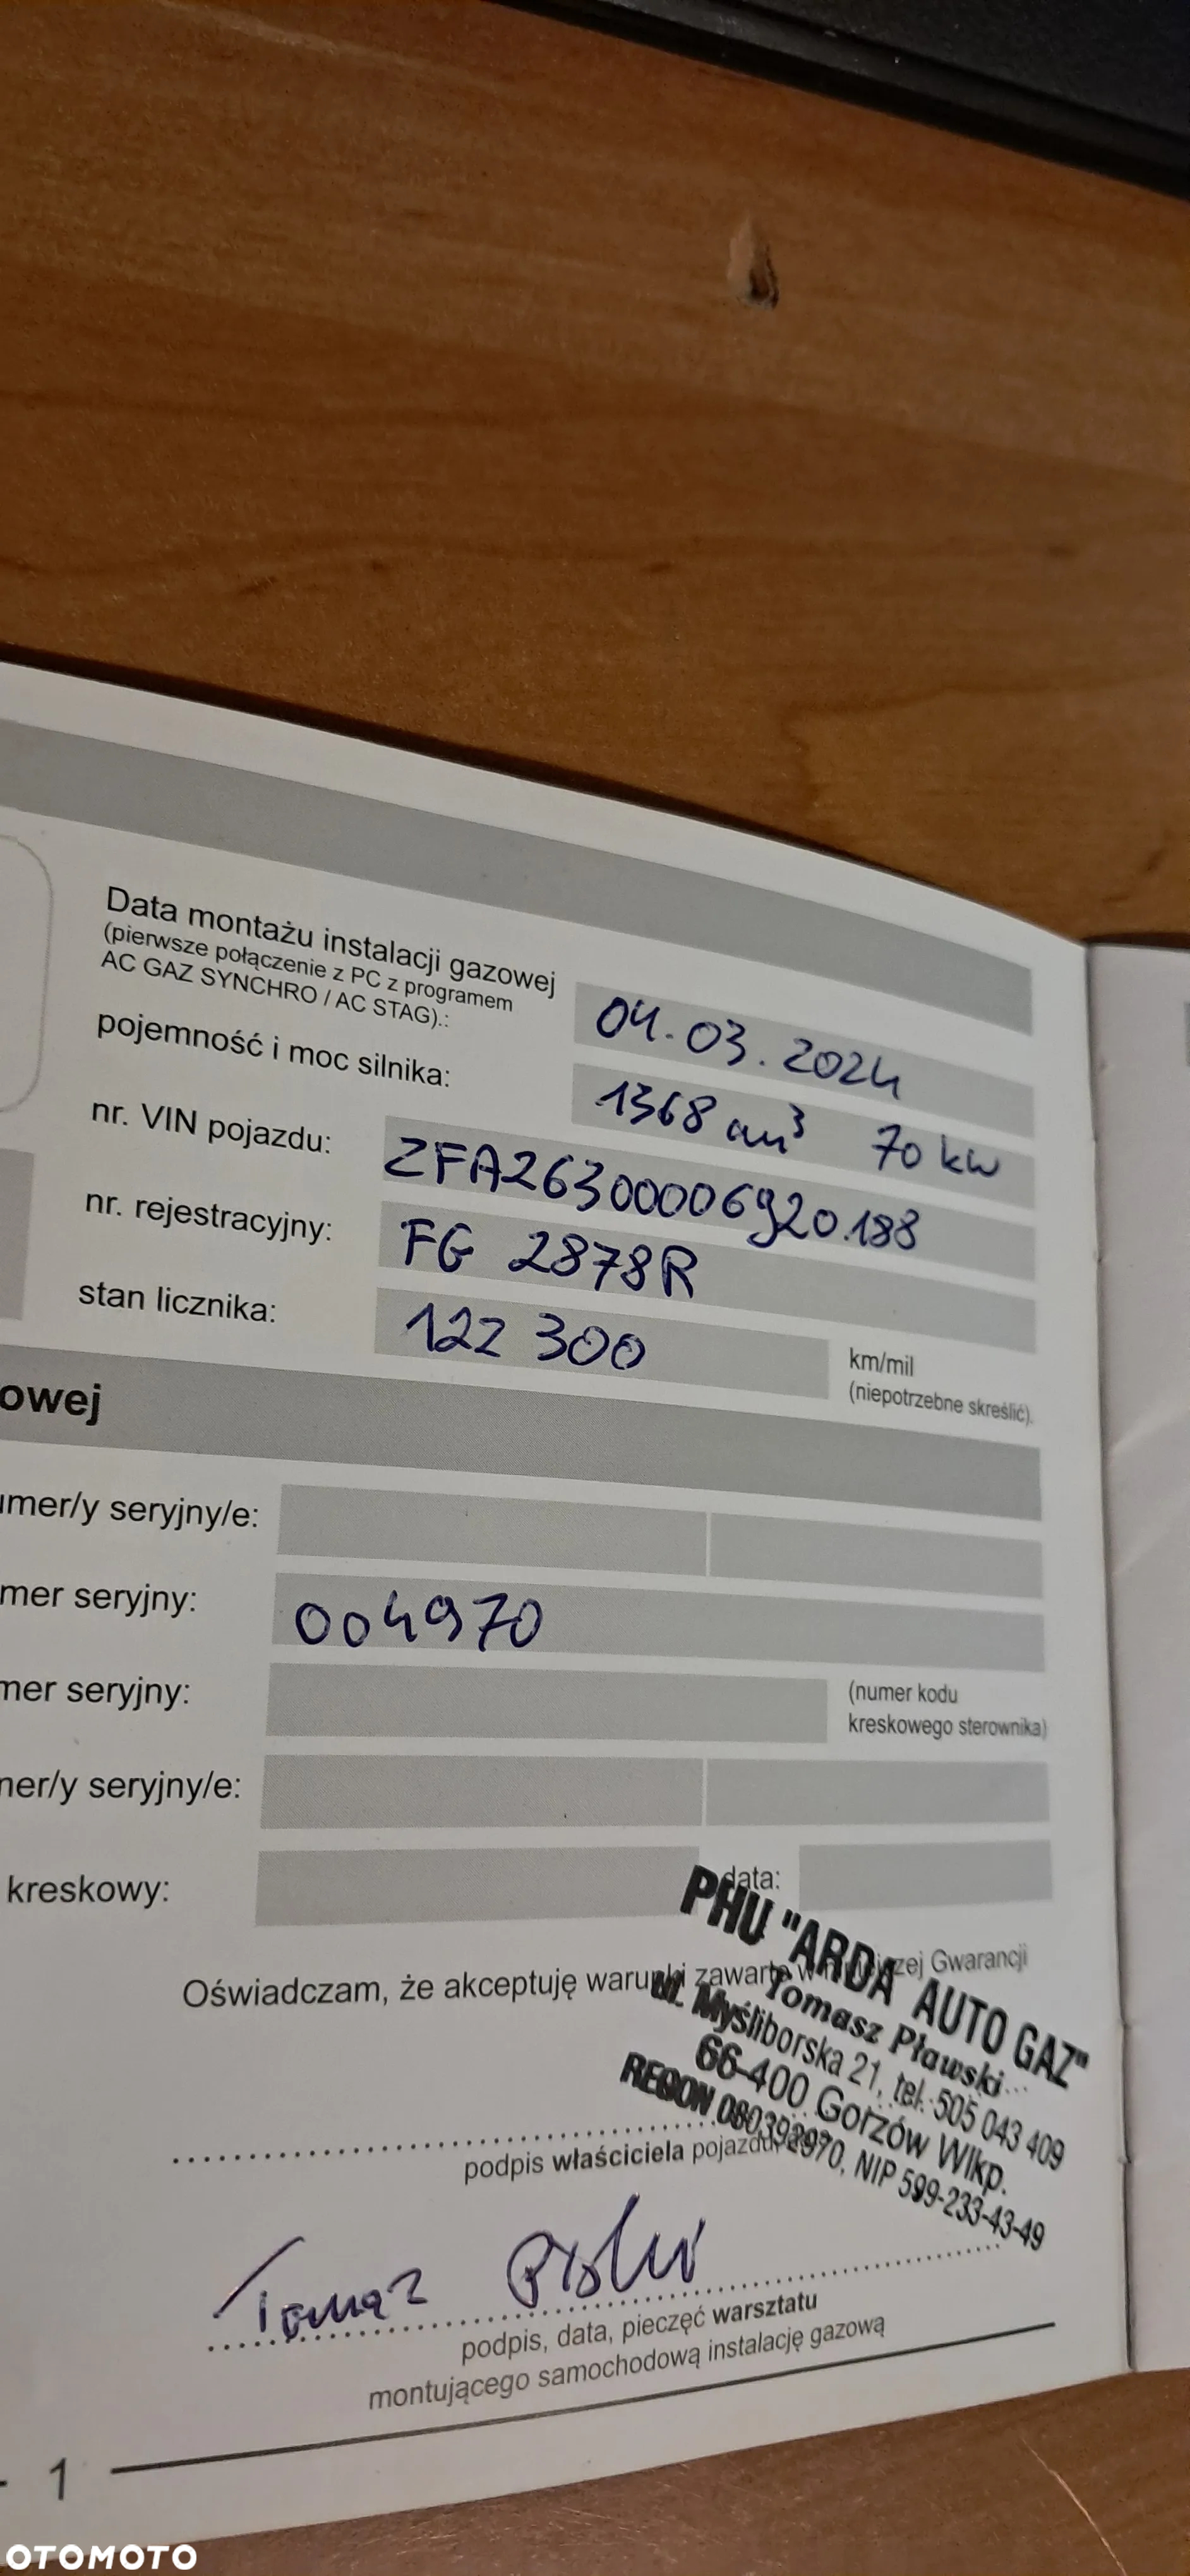 Data montażu instalacji gazowej
(pierwsze połączenie z PC z programem
AC GAZ SYNCHRO / AC STAG).:
04.03.2024
pojemność i moc silnika:
1368 cm³ 70 kW
nr. VIN pojazdu:
ZFA26300006920188
nr. rejestracyjny:
FG 2878R
stan licznika:
122 300
km/mil
(niepotrzebne skreślić).
owej
umer/y seryjny/e:
mer seryjny:
004970
mer seryjny:
(numer kodu
kreskowego sterownika)
mer/y seryjny/e:
kreskowy:
data:
Oświadczam, że akceptuję warunki zawarte w niniejszej Gwarancji
PHU "ARDA AUTO GAZ"
Tomasz Pławski
ul. Myśliborska 21, tel. 505 043 409
66-400 Gorzów Wlkp.
REGON 080392970, NIP 599-233-43-49
podpis właściciela pojazdu
Tomasz
podpis, data, pieczęć warsztatu
montującego samochodową instalację gazową
- 1
OTOMOTO